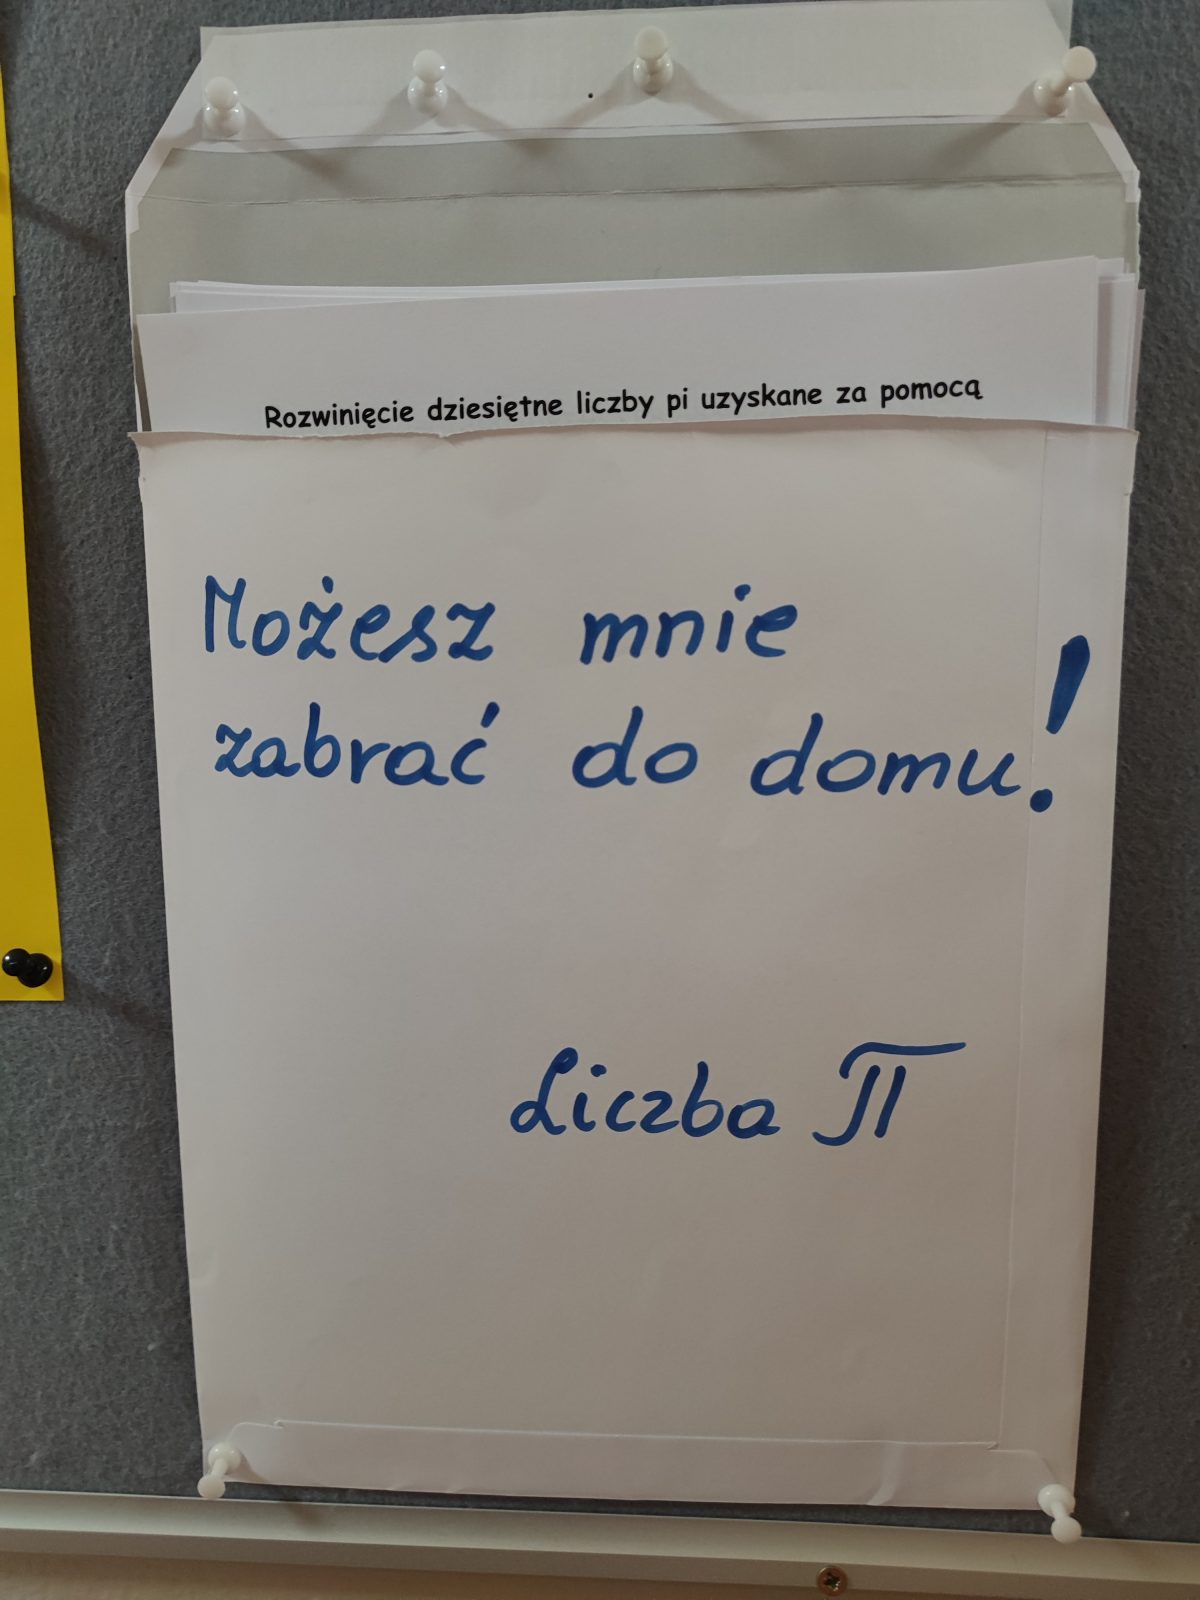 Rozwinięcie dziesiętne liczby pi uzyskane za pomocą
Możesz mnie
zabrać do domu!
Liczba π